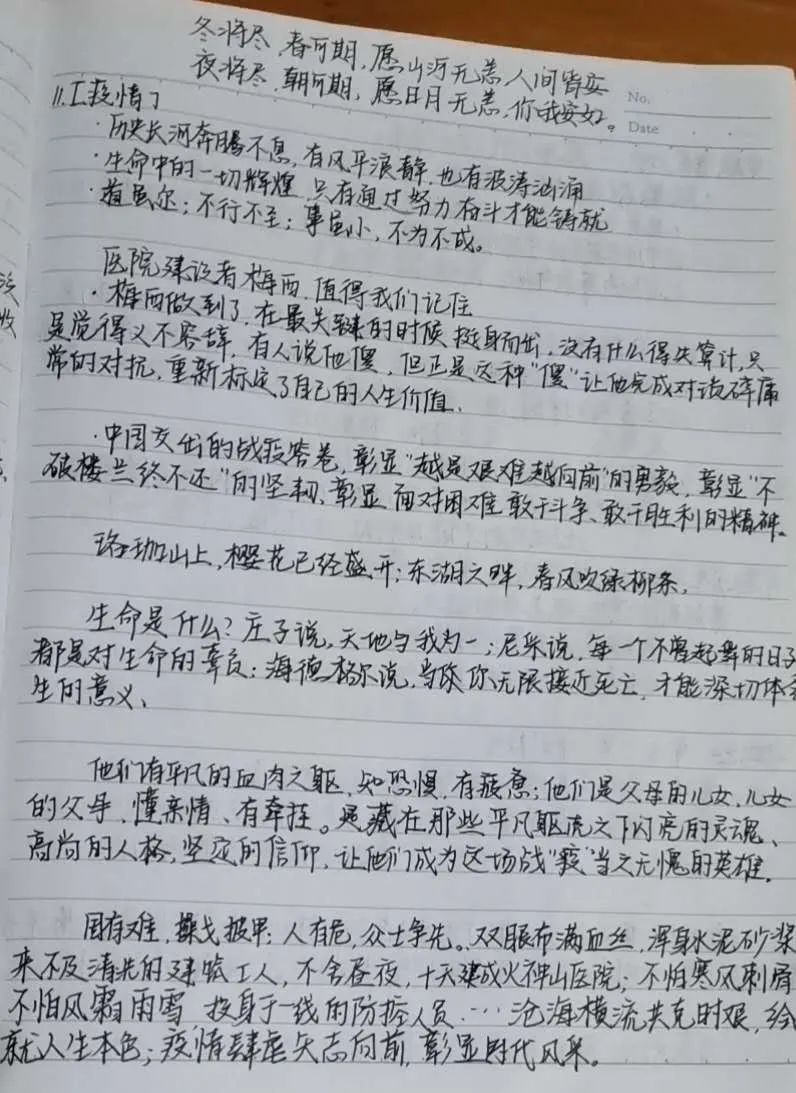 冬将尽,春可期,愿山河无恙,人间皆安
夜将尽,朝可期,愿日月无恙,你我安好。
No.
Date
11.【疫情】
·历史长河奔腾不息,有风平浪静,也有波涛汹涌
·生命中的一切辉煌,只有通过努力奋斗才能铸就
·道虽尔;不行不至;事虽小,不为不成。
医院建设者梅西,值得我们记住
·梅西做到了,在最关键的时候挺身而出,没有什么得失算计,只
是觉得义不容辞,有人说他傻,但正是这种"傻"让他完成对琐碎庸
常的对抗,重新标定了自己的人生价值.
·中国交出的战疫答卷,彰显"越是艰难越向前"的勇毅,彰显"不
破楼兰终不还"的坚韧、彰显面对困难敢于斗争、敢于胜利的精神。
珞珈山上,樱花已经盛开;东湖之畔,春风吹绿柳条,
生命是什么?庄子说,天地与我为一;尼采说,每一个不曾起舞的日子
都是对生命的辜负;海德格尔说,当你你无限接近死亡,才能深切体
生的意义、
他们有平凡的血肉之躯,知恐惧,有疲惫;他们是父母的儿女,儿女
的父母、懂亲情、有牵挂。是藏在那些平凡躯壳之下闪亮的灵魂、
高尚的人格,坚定的信仰,让他们成为这场战"疫"当之无愧的英雄.
国有难,操戈披甲;人有危,众士争先。双眼布满血丝,浑身水泥砂浆
来不及清洗的建筑工人,不舍昼夜,十天建成火神山医院;不怕寒风刺骨
不怕风霜雨雪 投身于一线的防控人员…沧海横流共克时艰,绘
就人生本色;疫情肆虐矢志向前,彰显时代风采。